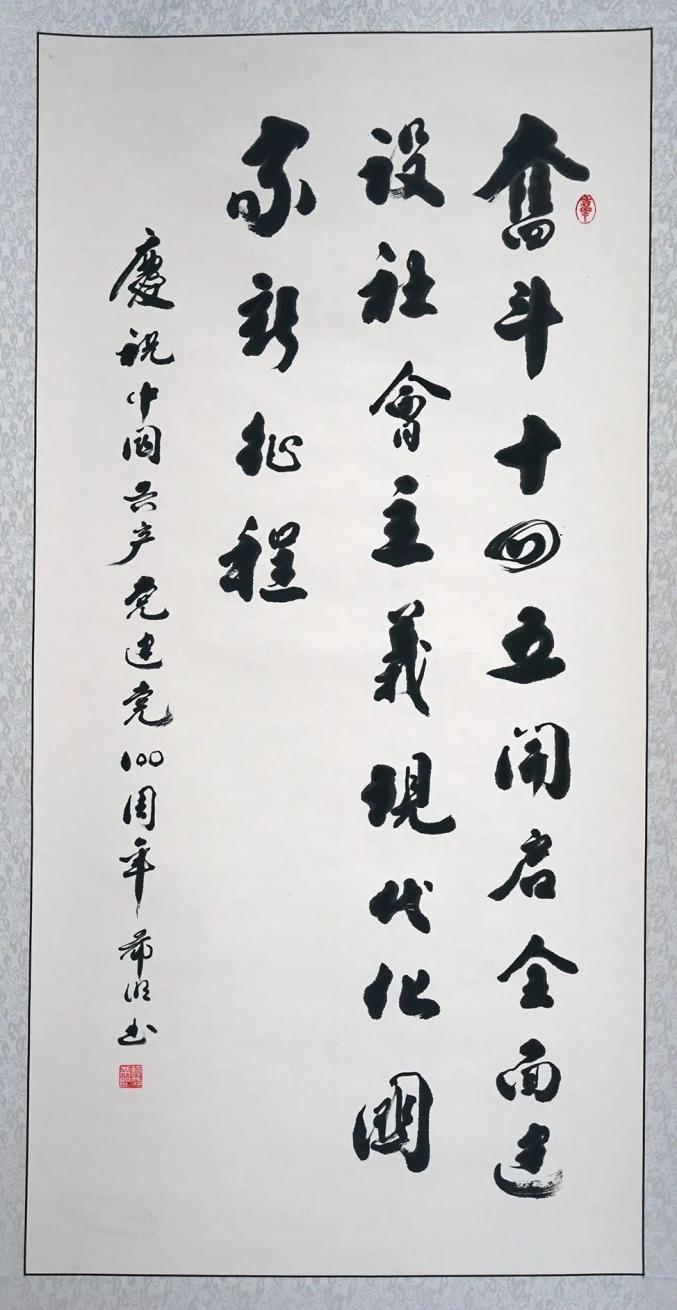 奮斗十四五開启全面建
設社會主義現代化國
家新征程
慶祝中国共产党建党100周年 希明书